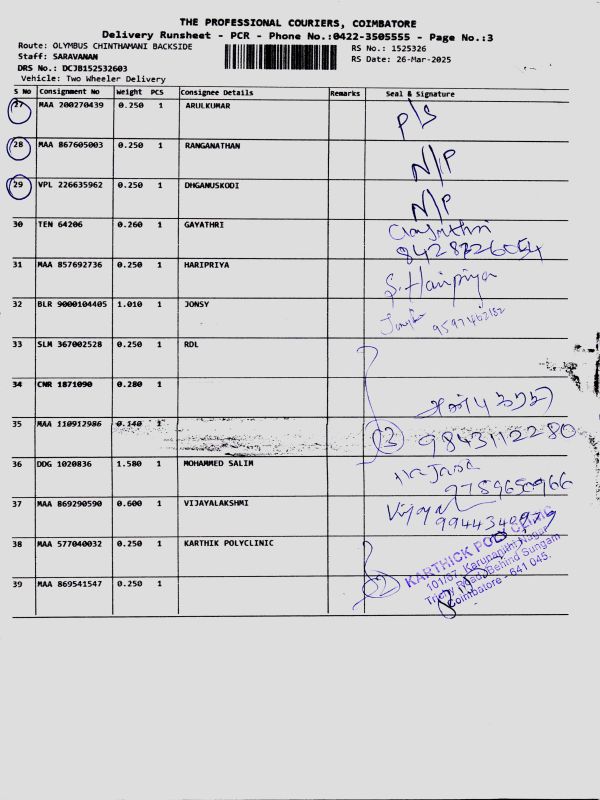 THE PROFESSIONAL COURIERS, COIMBATORE
Delivery Runsheet - PCR - Phone No.:0422-3505555 - Page No.:3
Route: OLYMBUS CHINTHAMANI BACKSIDE RS No.: 1525326
Staff: SARAVANAN RS Date: 26-Mar-2025
DRS No.: DCJB152532603
Vehicle: Two Wheeler Delivery
S No Consignment No Weight PCS Consignee Details Remarks Seal & Signature
27 MAA 200270439 0.250 1 ARULKUMAR P/S
28 MAA 867605003 0.250 1 RANGANATHAN N/P
29 VPL 226635962 0.250 1 DHGANUSKODI N/P
30 TEN 64206 0.260 1 GAYATHRI Gayathri
31 MAA 857692736 0.250 1 HARIPRIYA S. Haripriya
32 BLR 9000104405 1.010 1 JONSY
33 SLM 367002528 0.250 1 RDL
34 CNR 1871090 0.280 1
35 MAA 110912986 0.140 1 9843112280
36 DDG 1020836 1.580 1 MOHAMMED SALIM
37 MAA 869290590 0.600 1 VIJAYALAKSHMI
38 MAA 577040032 0.250 1 KARTHIK POLYCLINIC
39 MAA 869541547 0.250 1
KARTHICK POLY CLINIC
101/67, Karupanna Nagar
Trichy Road, Behind Sungam
Coimbatore - 641 045.